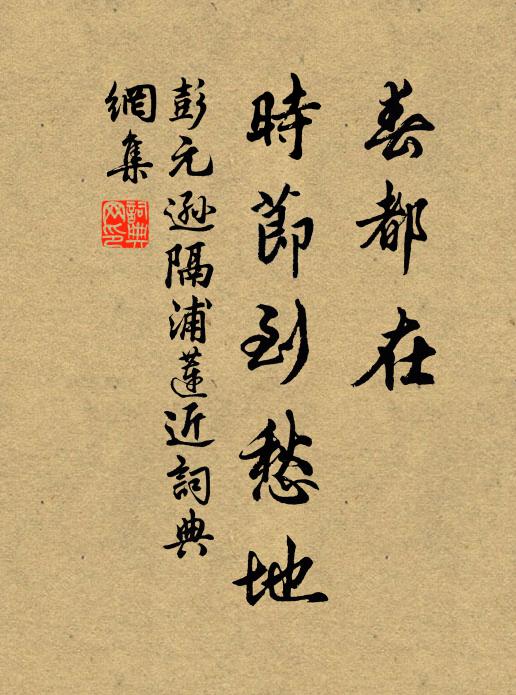 春都在
時節到愁地
彭元遜隔浦蓮近詞典
網集
詞典
网印